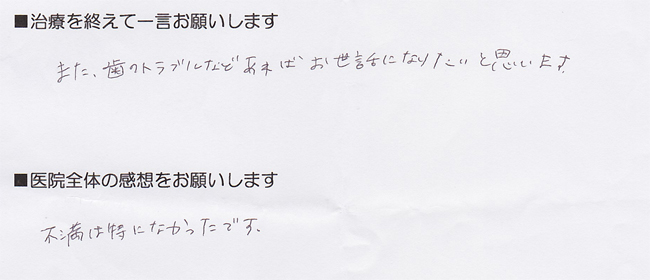 ■治療を終えて一言お願いします
また、歯のトラブルなどあればお世話になりたいと思います
■医院全体の感想をお願いします
不満は特になかったです。